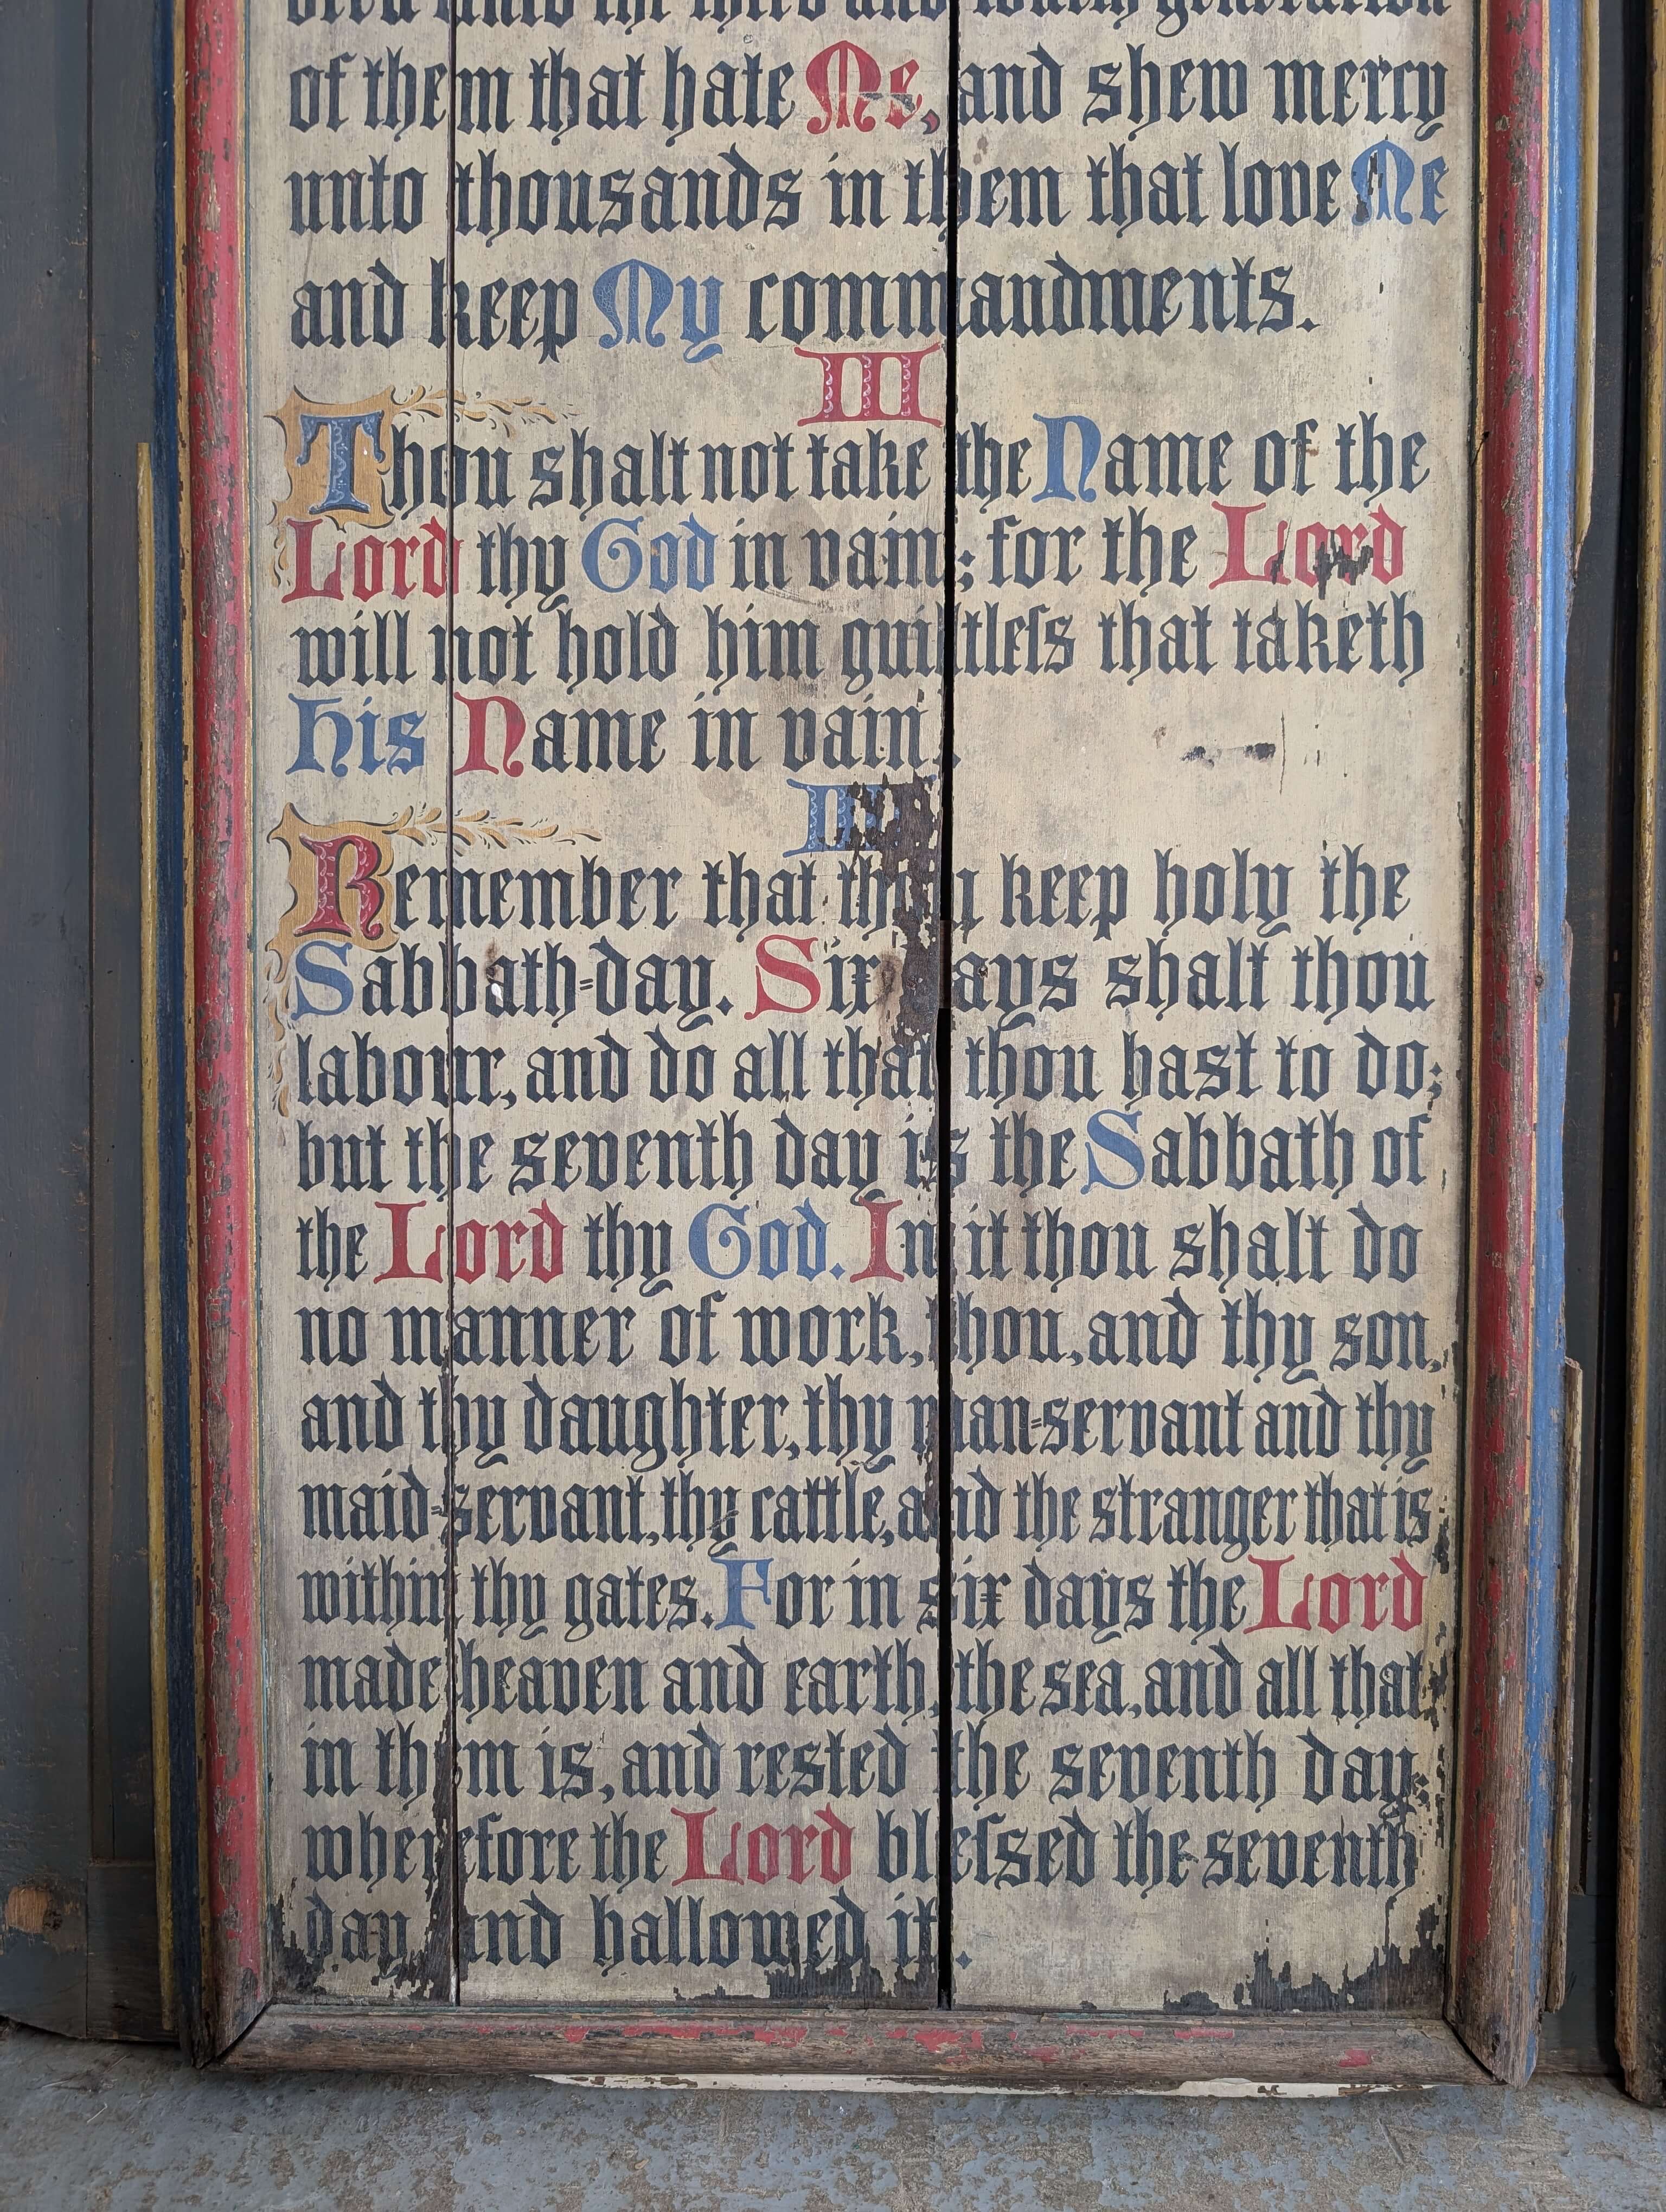 dren unto the third and fourth generation
of them that hate Me, and shew mercy
unto thousands in them that love Me
and keep My commandments.
III
Thou shalt not take the Name of the
Lord thy God in vain; for the Lord
will not hold him guiltleſs that taketh
his Name in vain.
Remember that thou keep holy the
Sabbath=day. Six days shalt thou
labour, and do all that thou hast to do;
but the seventh day is the Sabbath of
the Lord thy God. In it thou shalt do
no manner of work, thou, and thy son,
and thy daughter, thy man=servant and thy
maid=servant, thy cattle, and the stranger that is
within thy gates. For in six days the Lord
made heaven and earth, the sea, and all that
in them is, and rested the seventh day;
wherefore the Lord bleſsed the seventh
day, and hallowed it.